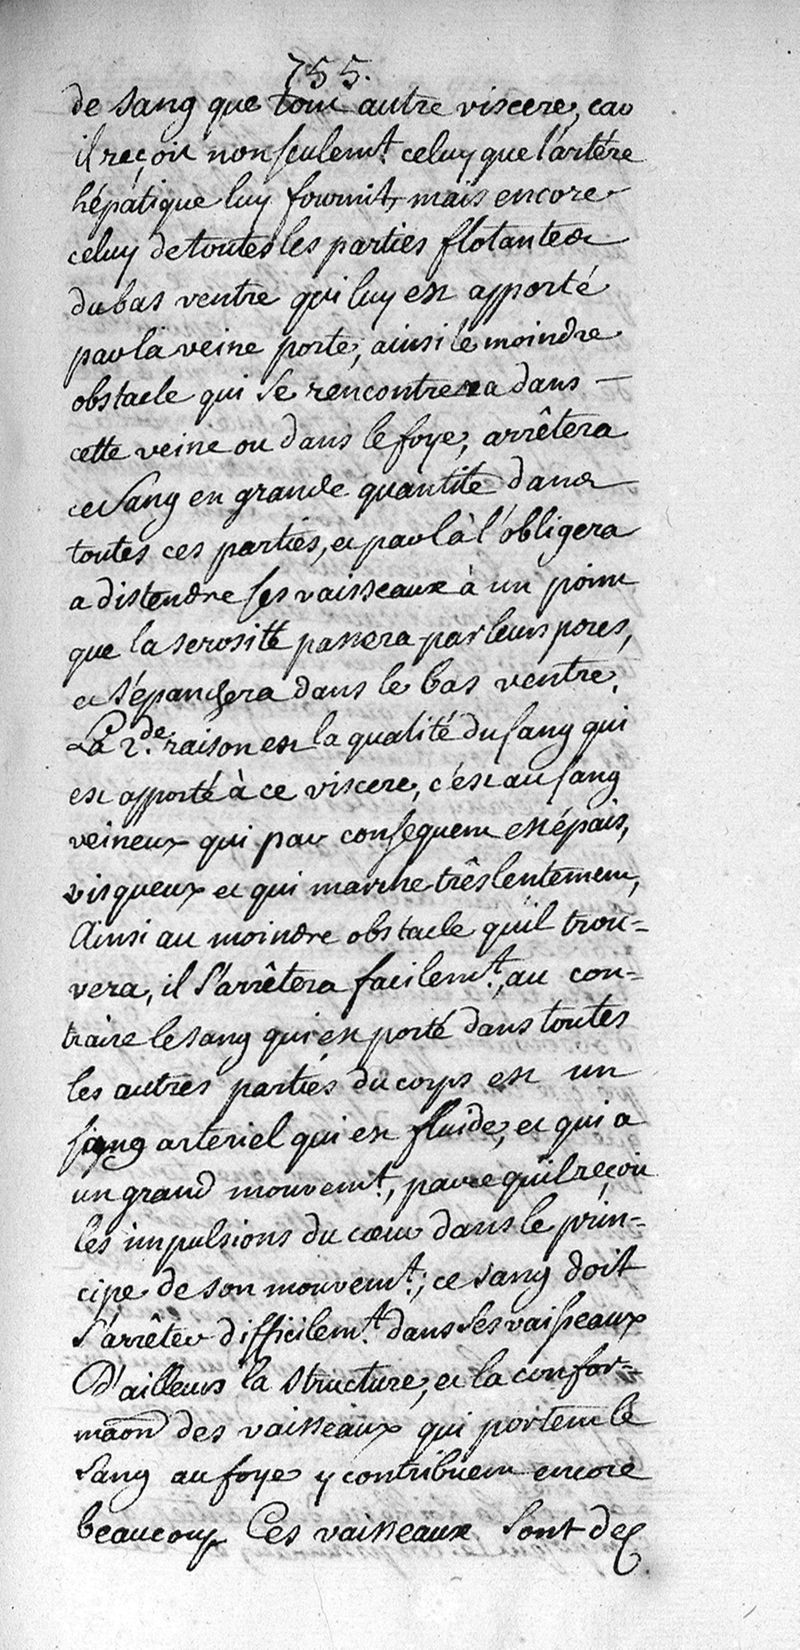 755.
de sang que tout autre viscere, car
il reçoit non seulemt. celuy que l'artére
hépatique luy fournit, mais encore
celuy de toutes les parties flotantes
du bas ventre qui luy est apporté
par la veine porte, ainsi le moindre
obstacle qui se rencontrera dans —
cette veine ou dans le foye, arrêtera
ce sang en grande quantité dans
toutes ces parties, et par là l'obligera
a distendre ses vaisseaux à un point
que la serosité passera par leurs pores,
et s'épanchera dans le bas ventre.
La 2.de raison est la qualité du sang qui
est apporté à ce viscere, c'est au sang
veineux qui par consequent est épais,
visqueux et qui marche três lentement,
Ainsi au moindre obstacle qu'il trou=
vera, il s'arrêtera facilemt., au con=
traire le sang qui est porté dans toutes
les autres parties du corps est un
sang arteriel qui est fluide, et qui a
un grand mouvemt., parce qu'il reçoit
les impulsions du cœur dans le prin=
cipe de son mouvemt.; ce sang doit
s'arrêter difficilemt. dans ses vaisseaux
D'ailleurs la structure, et la confor=
maõn des vaisseaux qui portent le
sang au foye y contribuent encore
beaucoup Ces vaisseaux sont des